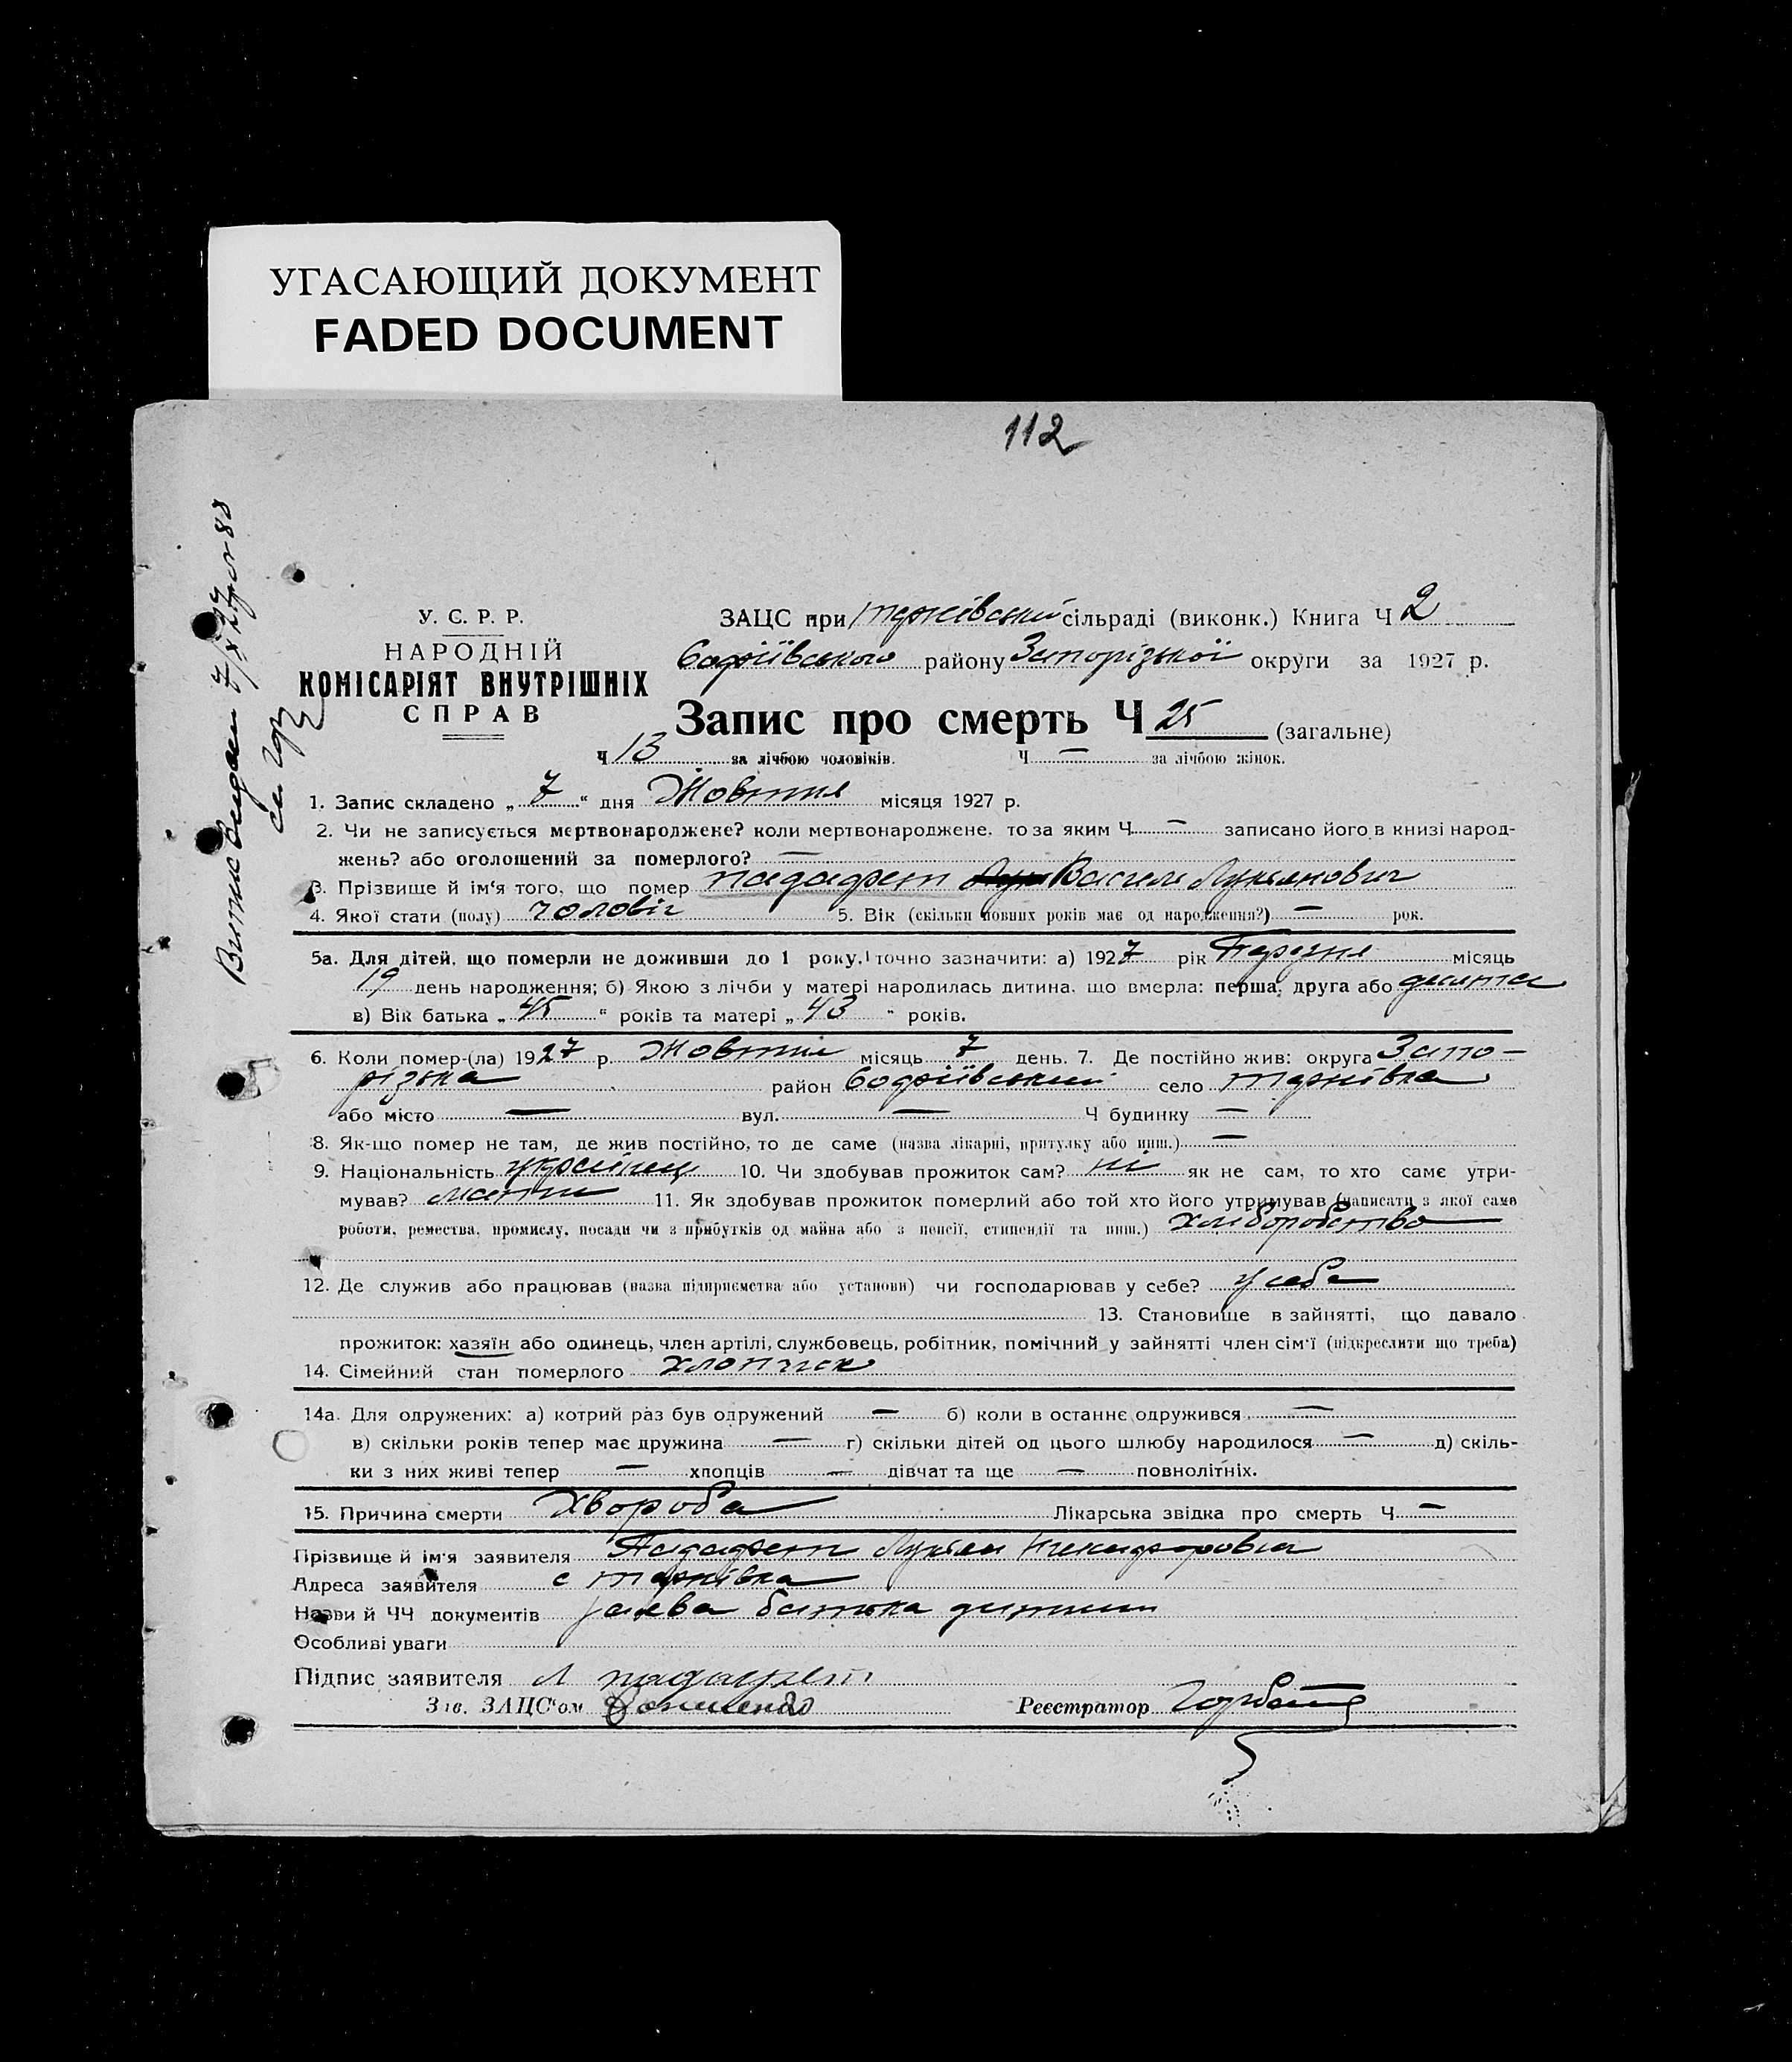 УГАСАЮЩИЙ ДОКУМЕНТ
FADED DOCUMENT
112
Випис видан 7/X 27р
У. С. Р. Р.
НАРОДНІЙ
КОМІСАРІЯТ ВНУТРІШНІХ
СПРАВ
ЗАЦС при сільраді (виконк.) Книга Ч 2
Софіївського району Запорізької округи за 1927 р.
Запис про смерть Ч 25 (загальне)
Ч 13 за лічбою чоловіків. Ч — за лічбою жінок.
1. Запис складено „ 7 “ дня Жовтня місяця 1927 р.
2. Чи не записується мертвонароджене? коли мертвонароджене, то за яким Ч — записано його в книзі народ-
жень? або оголошений за померлого? —
3. Прізвище й ім‘я того, що помер Падафет Василь Лукянович
4. Якої стати (полу) чоловіч 5. Вік (скільки повних років має од народження?) — рок.
5а. Для дітей, що померли не доживши до 1 року, точно зазначити: а) 1927 рік місяць
19 день народження; б) Якою з лічби у матері народилась дитина, що вмерла: перша, друга або десята
в) Вік батька „ 45 “ років та матері „ 43 “ років.
6. Коли помер-(ла) 1927 р. Жовтня місяць 7 день. 7. Де постійно жив: округа Запо-
різька район Софіївський село
або місто — вул. — Ч будинку —
8. Як-що помер не там, де жив постійно, то де саме (назва лікарні, притулку або инш.) —
9. Національність українец 10. Чи здобував прожиток сам? ні як не сам, то хто саме утри-
мував? 11. Як здобував прожиток померлий або той хто його утримував (написати з якої саме
роботи, ремества, промислу, посади чи з прибутків од майна або з пенсії, стипендії та инш.) хліборобство
12. Де служив або працював (назва підприємства або установи) чи господарював у себе? у себе
13. Становище в зайнятті, що давало
прожиток: хазяїн або одинець, член артілі, службовець, робітник, помічний у зайнятті член сім‘ї (підкреслити що треба)
14. Сімейний стан померлого хлопчик
14а. Для одружених: а) котрий раз був одружений — б) коли в останнє одружився —
в) скільки років тепер має дружина — г) скільки дітей од цього шлюбу народилося — д) скіль-
ки з них живі тепер — хлопців — дівчат та ще — повнолітніх.
15. Причина смерти хвороба Лікарська звідка про смерть Ч —
Прізвище й ім‘я заявителя Падафет Лукян Никифорович
Адреса заявителя с
Назви й ЧЧ документів заява батька дитини
Особливі уваги
Підпис заявителя Л Падафет
Зав. ЗАЦС‘ом Реєстратор